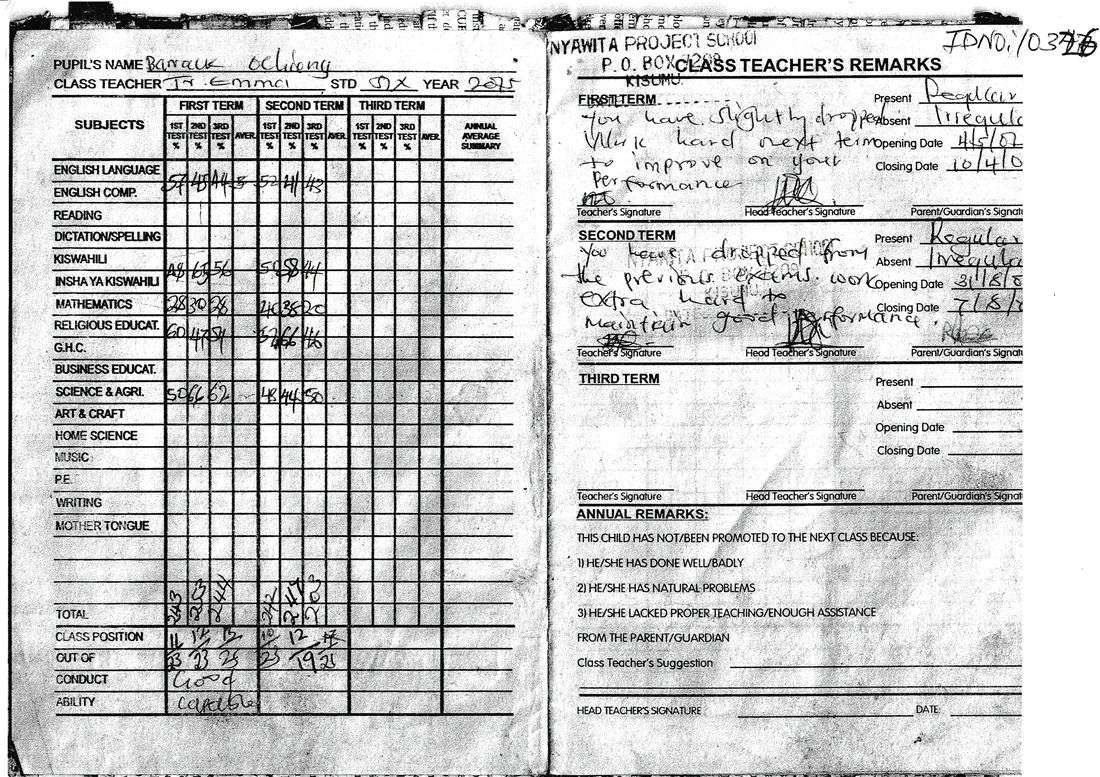 PUPIL'S NAME Barack Ochieng
CLASS TEACHER Tr. Emma STD SIX YEAR
SUBJECTS
FIRST TERM SECOND TERM THIRD TERM
1ST TEST % 2ND TEST % 3RD TEST % AVER. 1ST TEST % 2ND TEST % 3RD TEST % AVER. 1ST TEST % 2ND TEST % 3RD TEST % AVER. ANNUAL AVERAGE SUMMARY
ENGLISH LANGUAGE
57 45 44 52 41 43
ENGLISH COMP.
READING
DICTATION/SPELLING
KISWAHILI
48 65 56 58 44
INSHA YA KISWAHILI
MATHEMATICS 28 30 28 40 38 20
RELIGIOUS EDUCAT.
60 47 54 52 66 46
G.H.C.
BUSINESS EDUCAT.
SCIENCE & AGRI. 50 66 62 48 44 50
ART & CRAFT
HOME SCIENCE
MUSIC
P.E.
WRITING
MOTHER TONGUE
TOTAL 243 253 244 247 203
CLASS POSITION 11 12 10 12
OUT OF 23 23 25 23 19 21
CONDUCT Good
ABILITY Capable
NYAWITA PROJECT SCHOOL
P. O. BOX
KISUMU.
IDNO:
CLASS TEACHER'S REMARKS
FIRST TERM
Present Regular
You have slightly dropped
Absent Irregula
Work hard next term
Opening Date 4/5/07
to improve on your
Closing Date 10/4/0
Performance
Teacher's Signature Head Teacher's Signature Parent/Guardian's Signat
SECOND TERM
Present Regular
You have dropped from
Absent Irregula
the previous exams. work
Opening Date
extra hard to
Closing Date 7/8/
maintain good performance.
Teacher's Signature Head Teacher's Signature Parent/Guardian's Signat
THIRD TERM
Present
Absent
Opening Date
Closing Date
Teacher's Signature Head Teacher's Signature Parent/Guardian's Signat
ANNUAL REMARKS:
THIS CHILD HAS NOT/BEEN PROMOTED TO THE NEXT CLASS BECAUSE:
1) HE/SHE HAS DONE WELL/BADLY
2) HE/SHE HAS NATURAL PROBLEMS
3) HE/SHE LACKED PROPER TEACHING/ENOUGH ASSISTANCE
FROM THE PARENT/GUARDIAN
Class Teacher's Suggestion
HEAD TEACHER'S SIGNATURE DATE